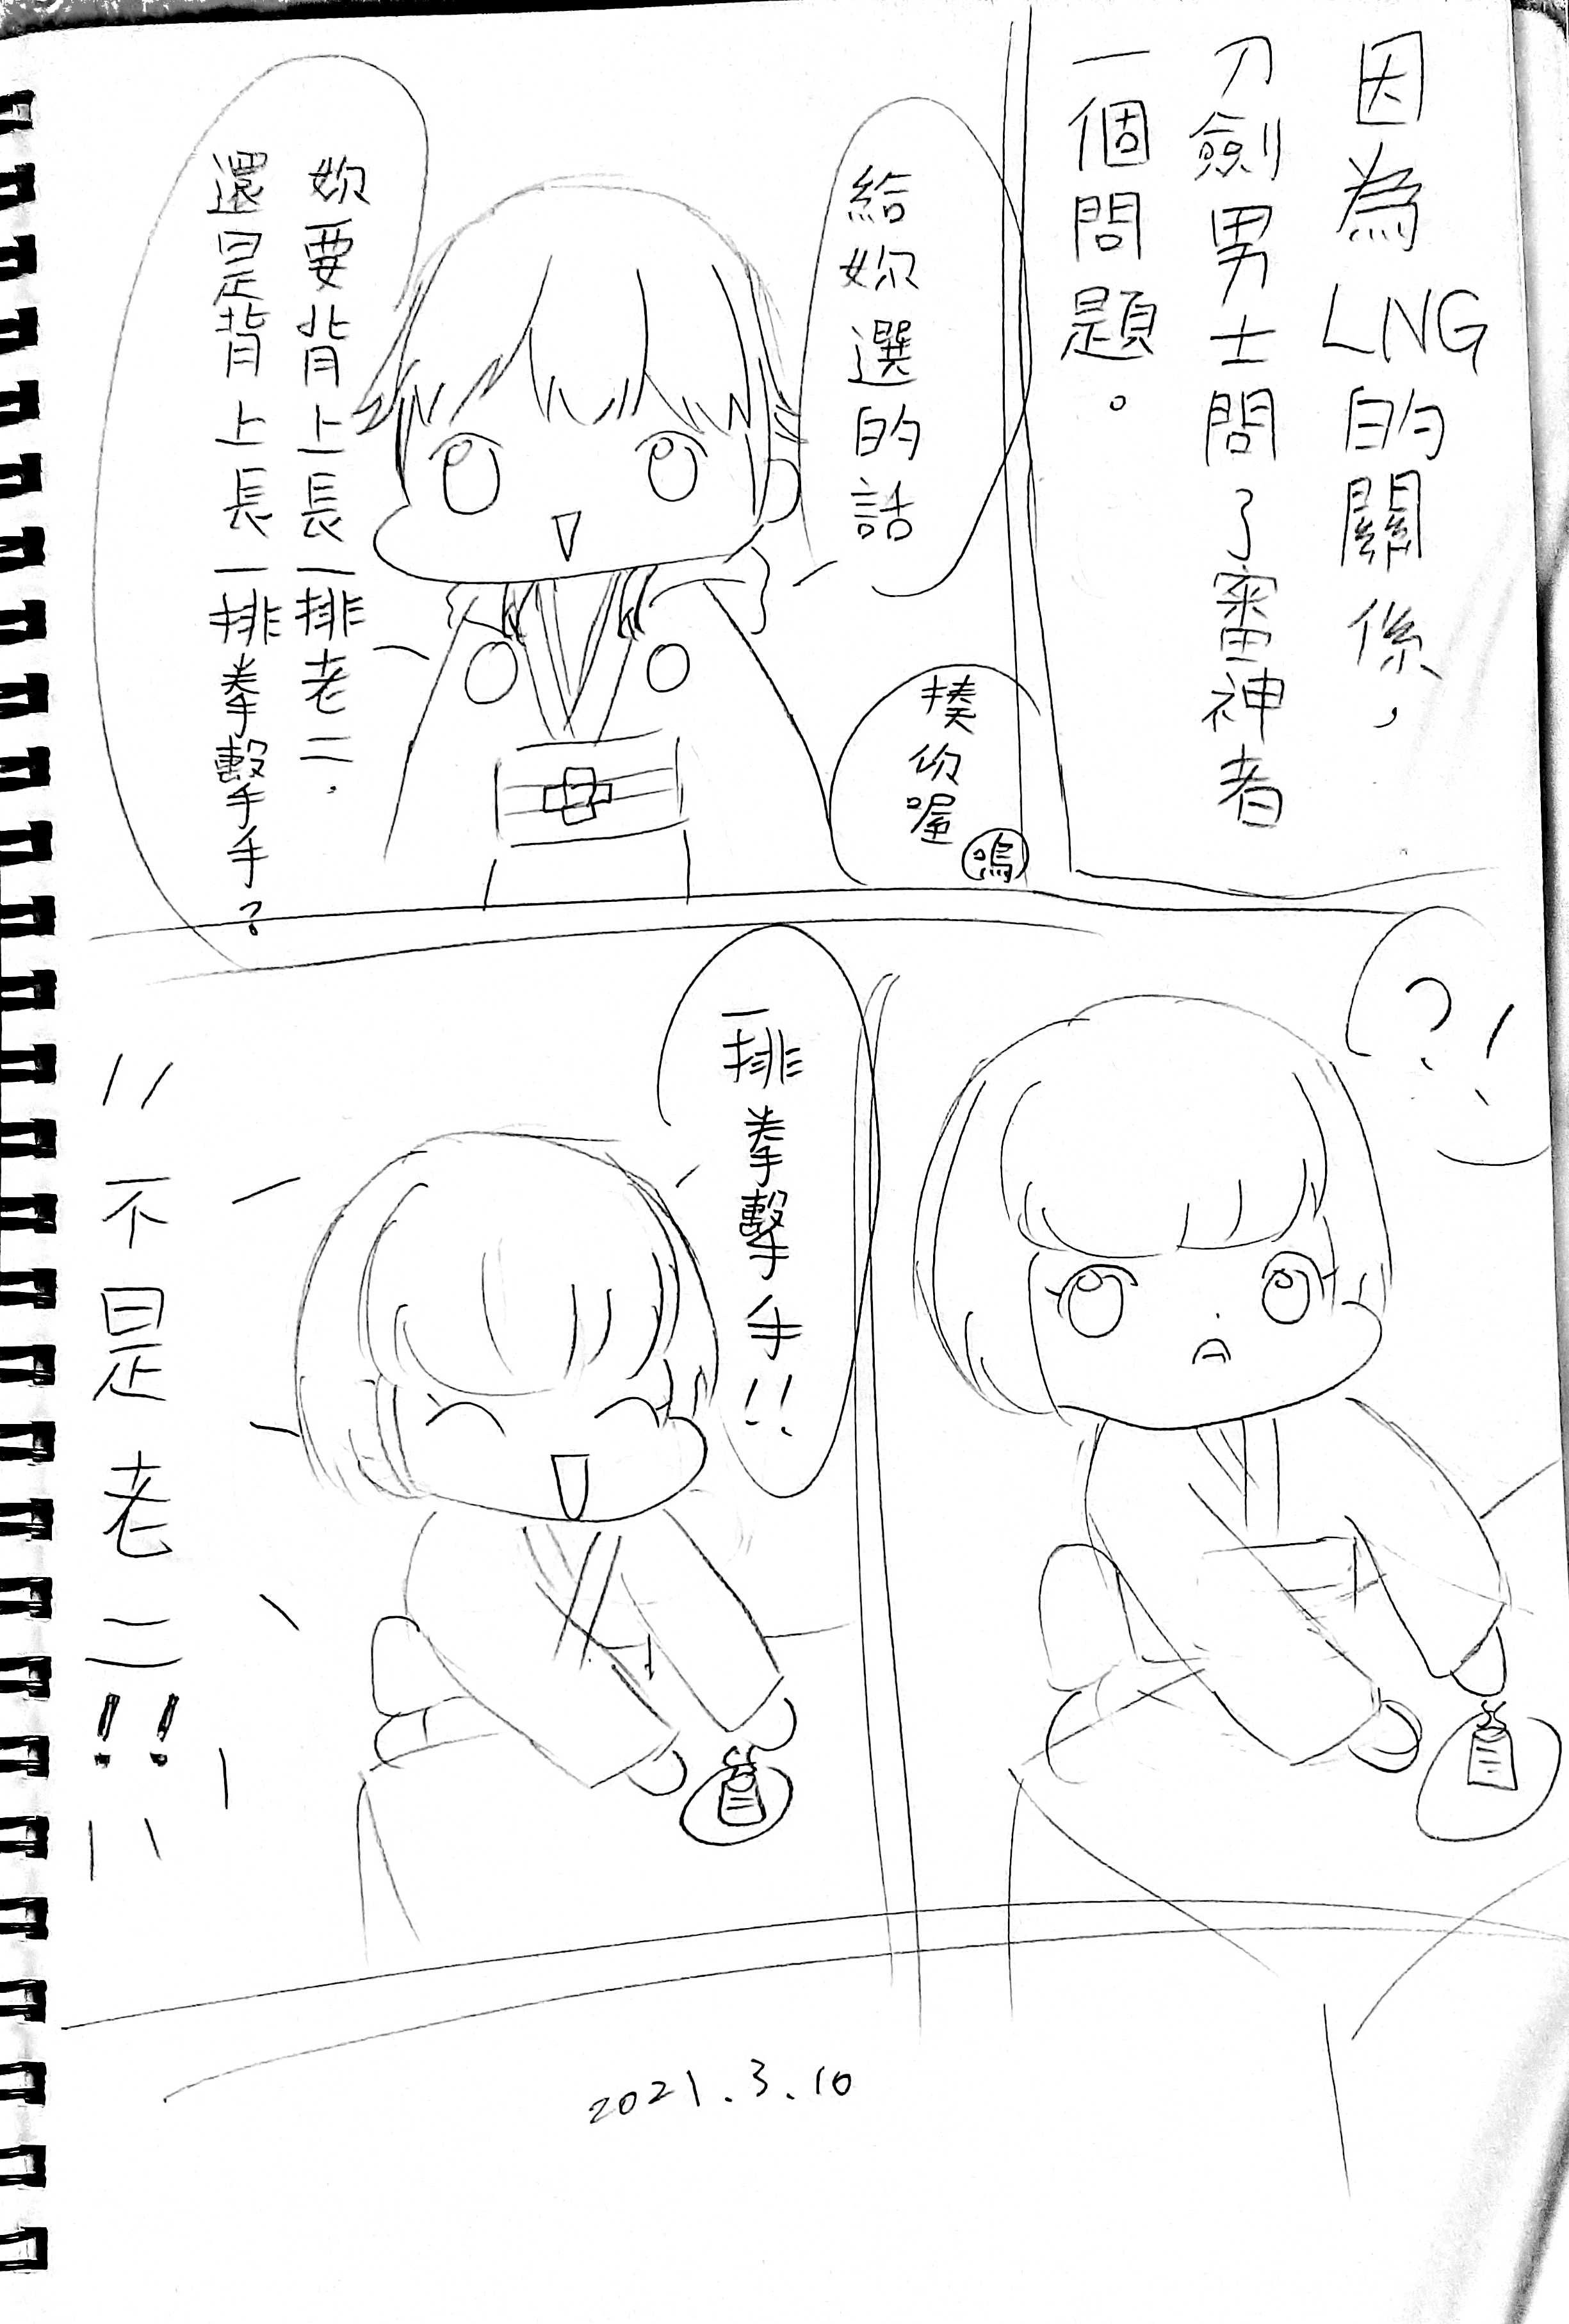 因為LNG的關係，
刀劍男士問了審神者
一個問題。
給妳選的話
妳要背上長一排老二.
還是背上長一排拳擊手?
揍你喔
鳴
?!
一排拳擊手!!
不是老二!!
2021.3.10